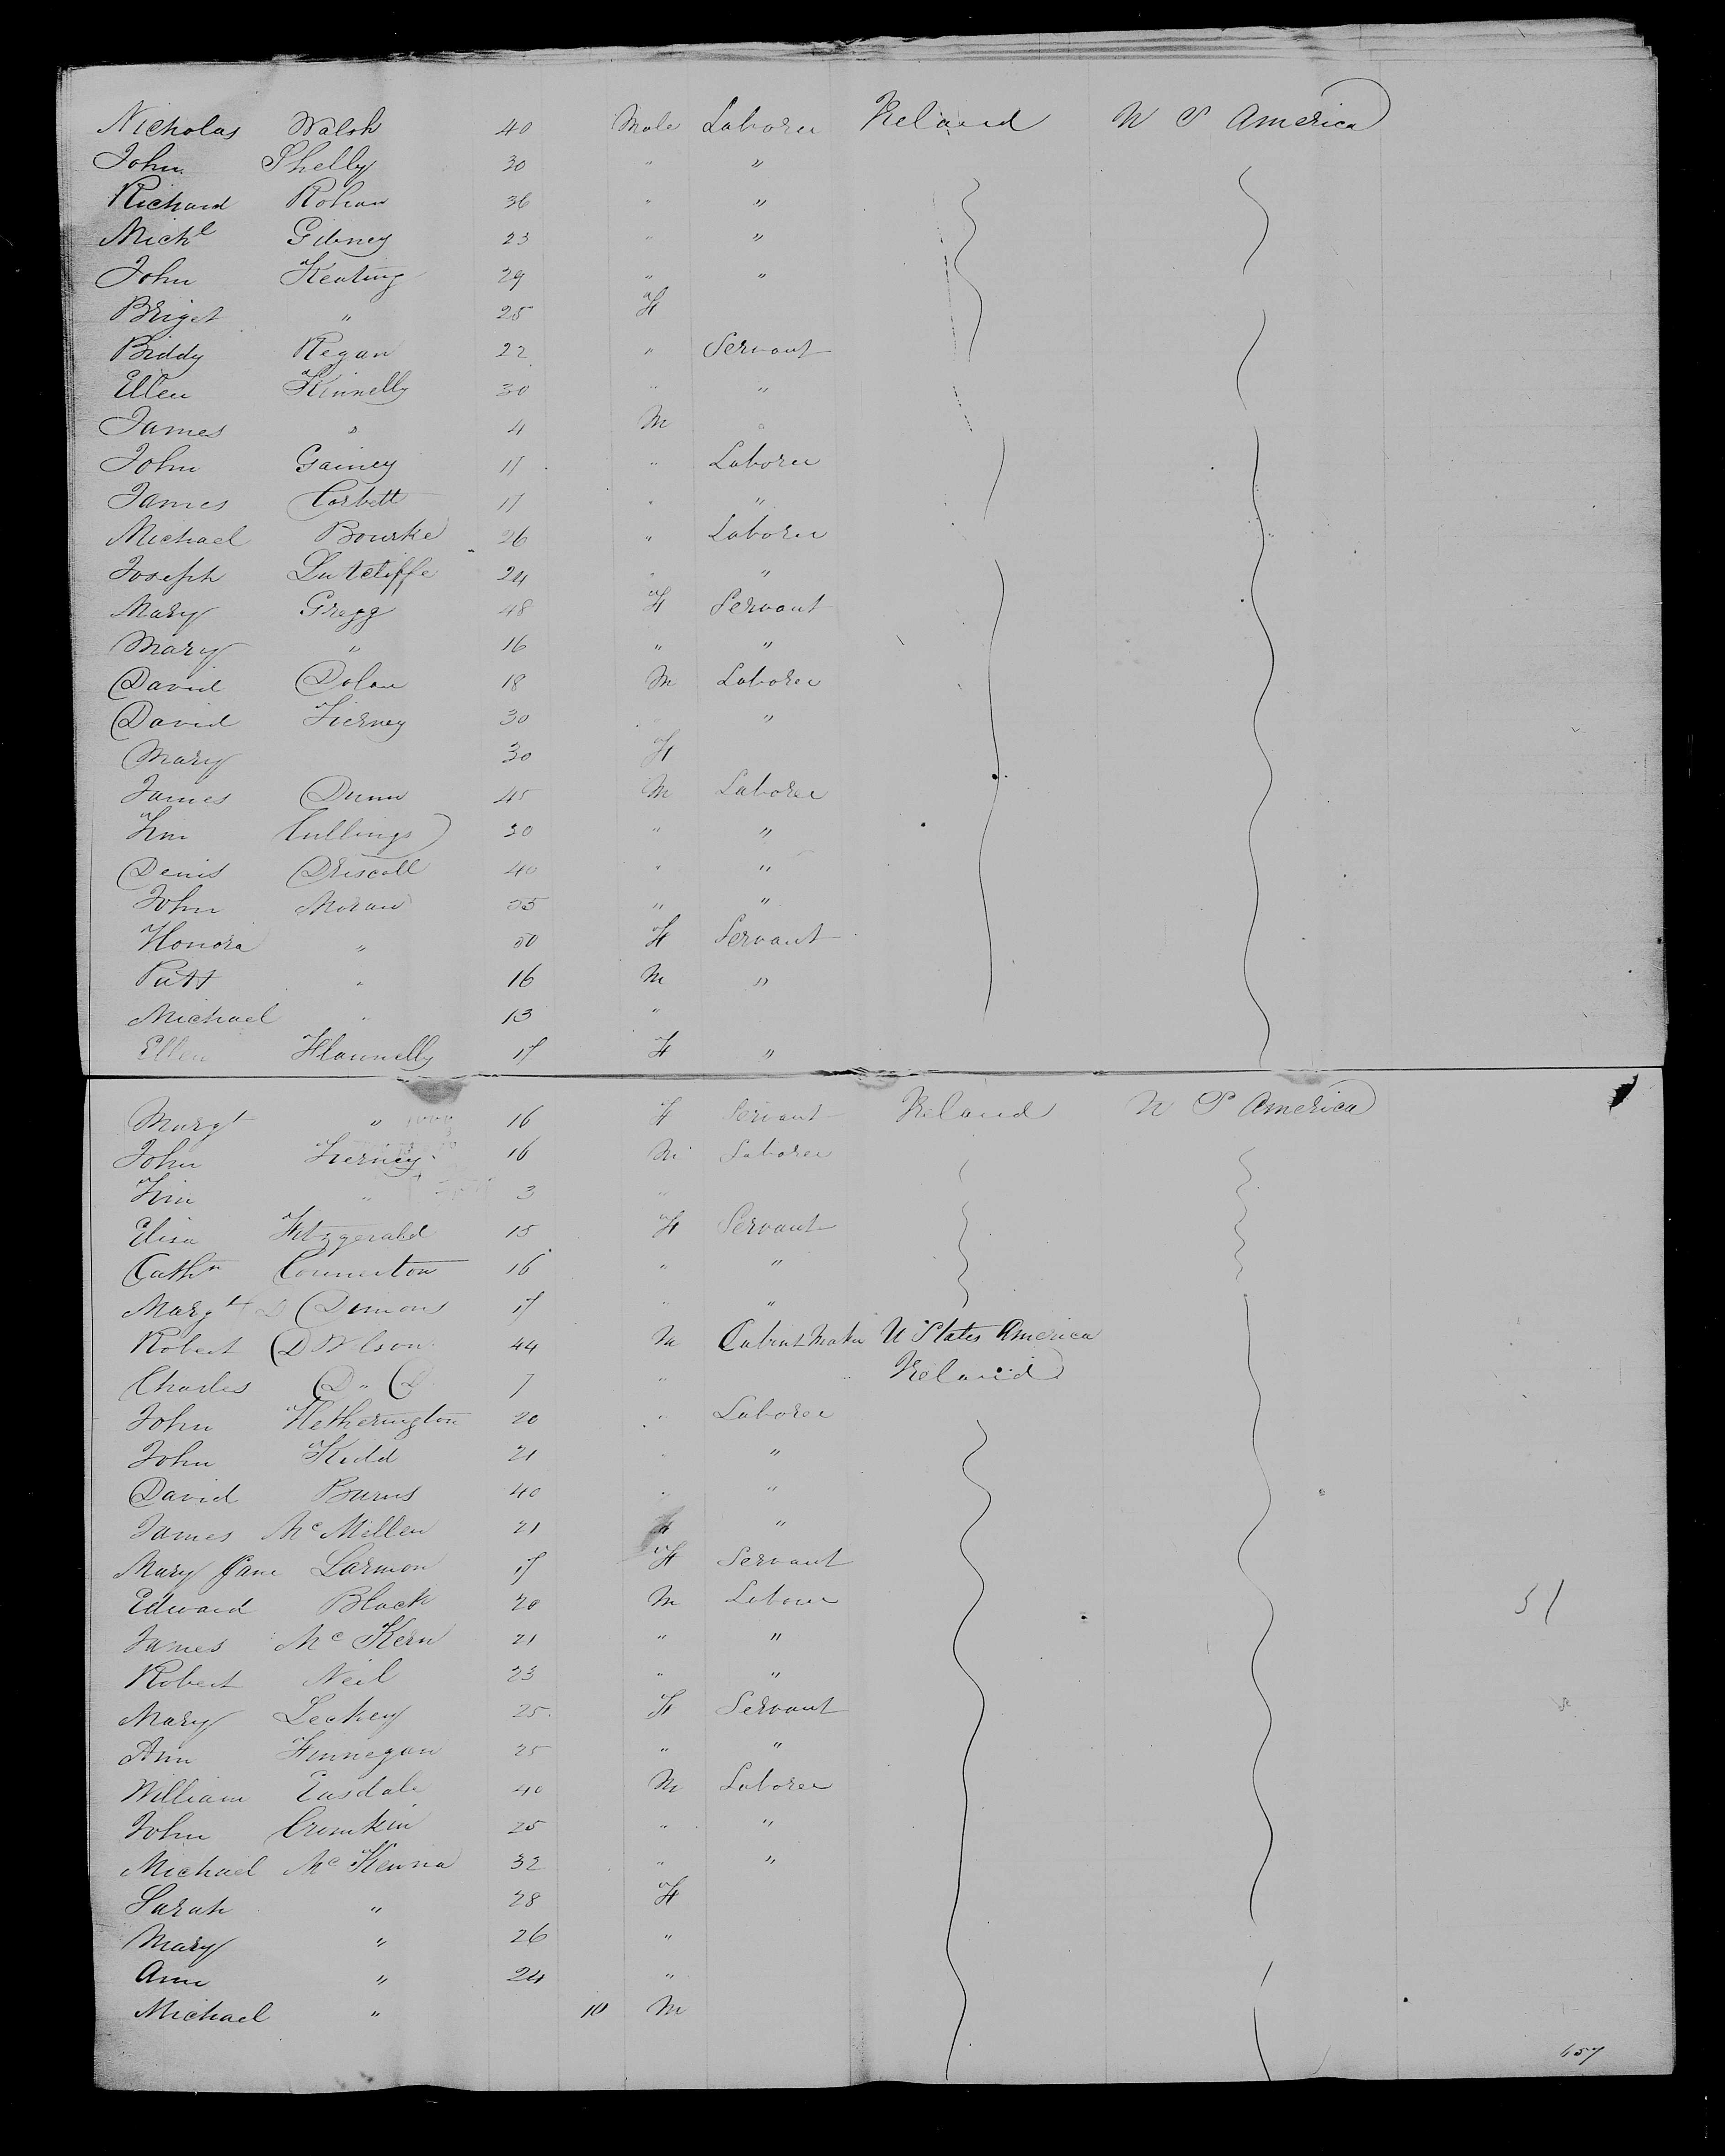 Nicholas Walsh 40 Male Laborer Ireland U S America
John Shelly 30 " "
Richard Rohan 36 " "
Michl Gibney 23 " "
John Keating 29 " "
Briget " 25 F
Biddy Regan 22 " Servant
Ellen Kinnelly 30 " "
James " 4 M
John Gainey 17 " Laborer
James Corbett 17 " "
Michael Bourke 26 " Laborer
Joseph Sutcliffe 24 " "
Mary Gregg 48 F Servant
Mary " 16 " "
David Dolan 18 M Laborer
David Tierney 30 "
Mary 30 F
James Dunn 45 M Laborer
Tim Cullings 30 " "
Denis Driscoll 40 " "
John Moran 55 " "
Honora " 50 F Servant
Patt " 16 M "
Michael " 13 "
Ellen Flannelly 17 F "
Margt " 16 F Servant Ireland U S America
John Tierney 16 M Laborer
Tim " 3 "
Elisa Fitzgerald 15 F Servant
Cathn Connerton 16 " "
Margt Dimons 17 " "
Robert D Wilson 44 M Cabinet Maker U States America
Charles D " 7 " Ireland
John Hetherington 20 " Laborer
John Kidd 21 " "
David Burns 40 " "
James McMillen 21 "
Mary Jane Larmon 17 F Servant
Edward Black 20 M Laborer
James McKern 21 " "
Robert Neil 23 " "
Mary Leckey 25 F Servant
Ann Finnegan 25 " "
William Easdale 40 M Laborer
John Crumkin 25 " "
Michael McKenna 32 " "
Sarah " 28 F
Mary " 26 "
Ann " 24 "
Michael " 10 M
657